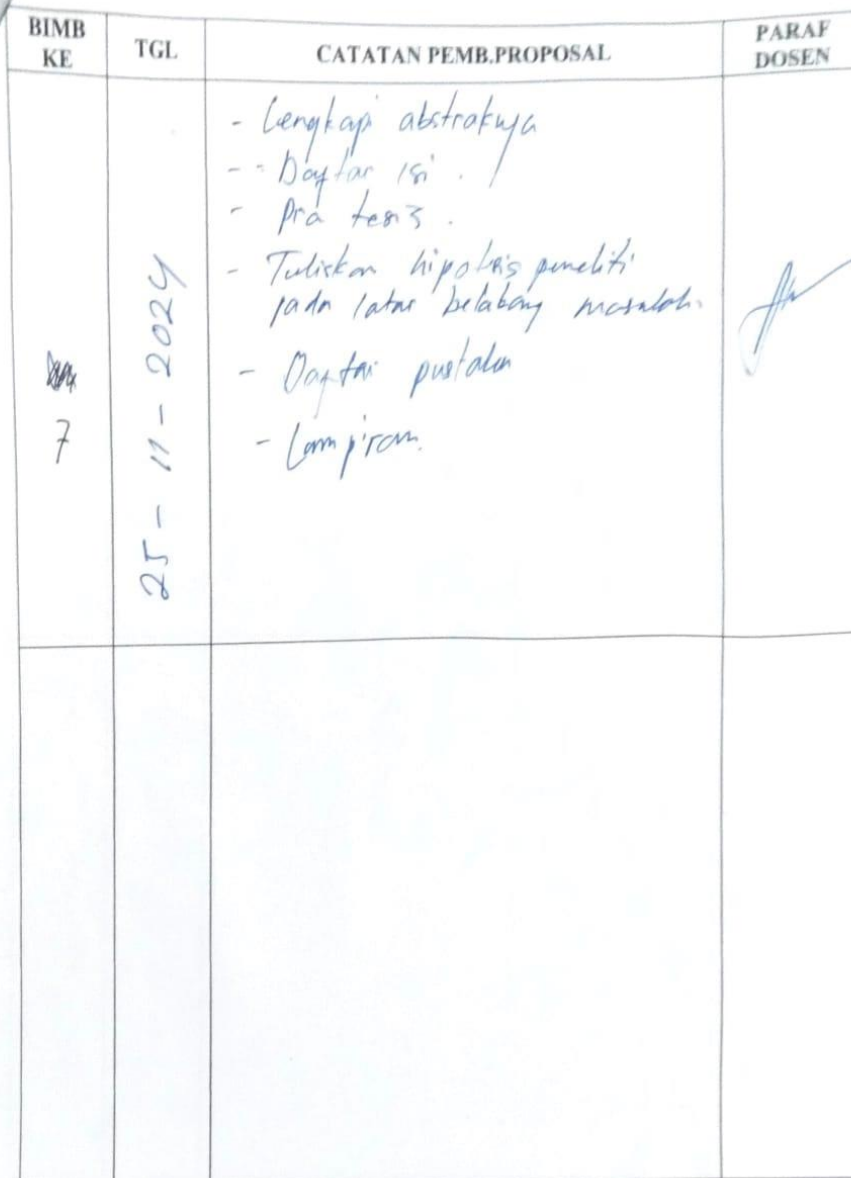 BIMB KE
TGL
CATATAN PEMB.PROPOSAL
PARAF DOSEN
7
25 - 11 - 2024
- Lengkapi abstraknya
- - Daftar isi .
- Pra tesis .
- Tuliskan hipotesis peneliti
pada latar belakang masalah.
- Daftar pustaka
- Lampiran.